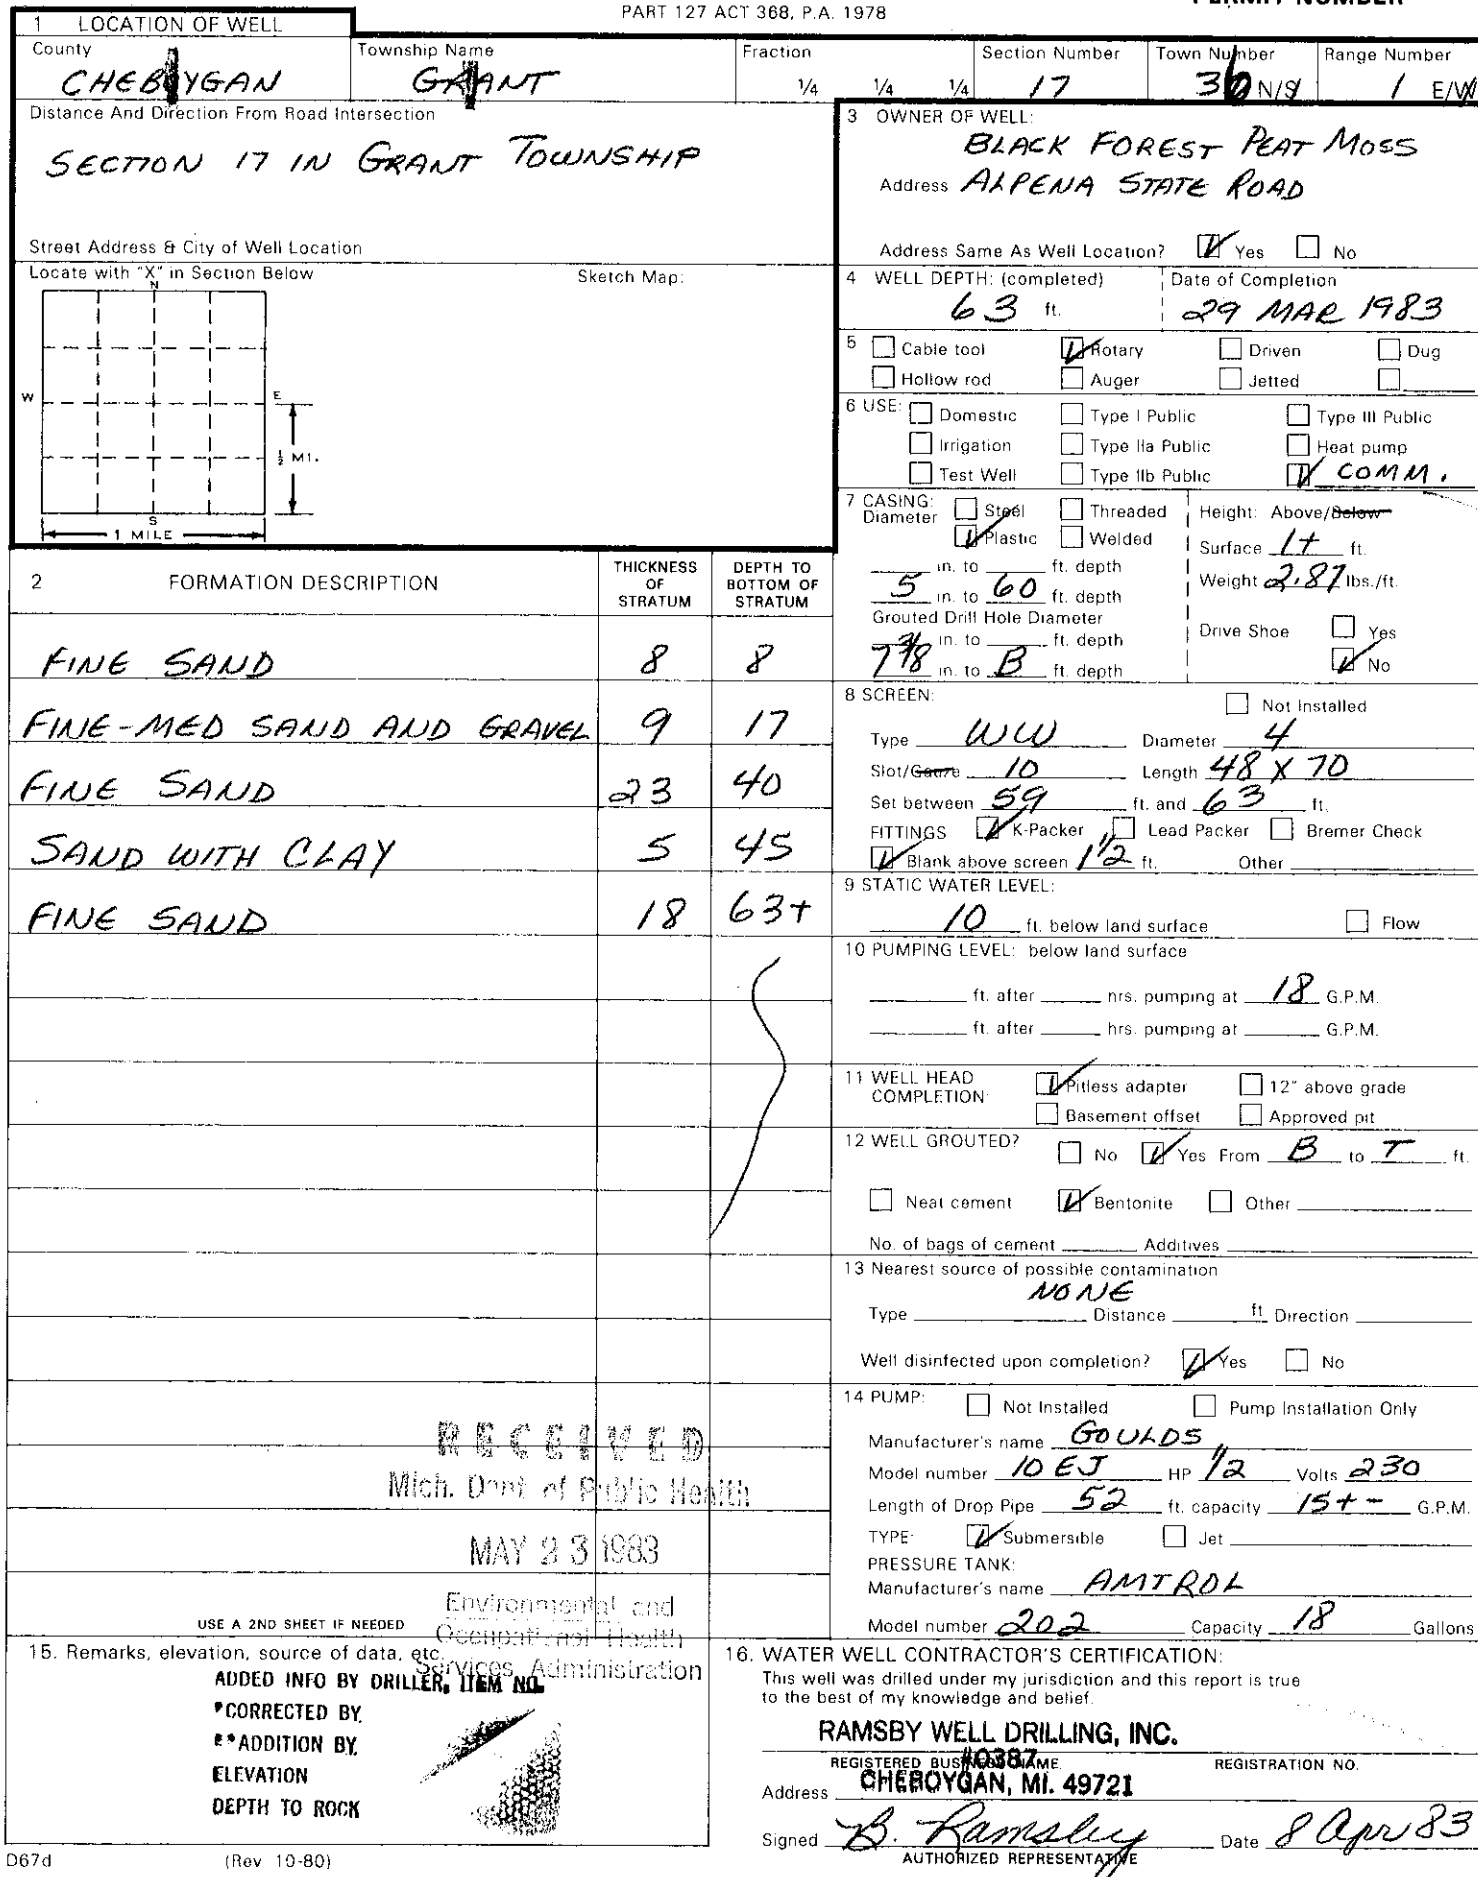 PART 127 ACT 368, P.A. 1978
PERMIT NUMBER
1 LOCATION OF WELL
County Township Name Fraction Section Number Town Number Range Number
CHEBOYGAN GRANT 1/4 1/4 1/4 17 36 N/S 1 E/W
Distance And Direction From Road Intersection
SECTION 17 IN GRANT TOWNSHIP
Street Address & City of Well Location
Locate with "X" in Section Below Sketch Map:
N
W E
1/2 MI.
S
1 MILE
3 OWNER OF WELL:
BLACK FOREST PEAT MOSS
Address ALPENA STATE ROAD
Address Same As Well Location? Yes No
4 WELL DEPTH: (completed) Date of Completion
63 ft. 29 MAR 1983
5 Cable tool Rotary Driven Dug
Hollow rod Auger Jetted
6 USE: Domestic Type I Public Type III Public
Irrigation Type IIa Public Heat pump
Test Well Type IIb Public COMM.
7 CASING: Steel Threaded Height: Above/Below
Diameter Plastic Welded Surface 1+ ft.
in. to ft. depth Weight 2.87 lbs./ft.
5 in. to 60 ft. depth
Grouted Drill Hole Diameter Drive Shoe Yes
in. to ft. depth No
7 7/8 in. to B ft. depth
2 FORMATION DESCRIPTION THICKNESS OF STRATUM DEPTH TO BOTTOM OF STRATUM
FINE SAND 8 8
FINE-MED SAND AND GRAVEL 9 17
FINE SAND 23 40
SAND WITH CLAY 5 45
FINE SAND 18 63+
8 SCREEN: Not Installed
Type WW Diameter 4
Slot/Gauze 10 Length 48 X 70
Set between 59 ft. and 63 ft.
FITTINGS K-Packer Lead Packer Bremer Check
Blank above screen 1 1/2 ft. Other
9 STATIC WATER LEVEL:
10 ft. below land surface Flow
10 PUMPING LEVEL: below land surface
ft. after hrs. pumping at 18 G.P.M.
ft. after hrs. pumping at G.P.M.
11 WELL HEAD COMPLETION: Pitless adapter 12" above grade
Basement offset Approved pit
12 WELL GROUTED? No Yes From B to T ft.
Neat cement Bentonite Other
No. of bags of cement Additives
13 Nearest source of possible contamination
NONE
Type Distance ft Direction
Well disinfected upon completion? Yes No
14 PUMP: Not Installed Pump Installation Only
Manufacturer's name GOULDS
Model number 10 EJ HP 1/2 Volts 230
Length of Drop Pipe 52 ft. capacity 15+- G.P.M.
TYPE: Submersible Jet
PRESSURE TANK:
Manufacturer's name AMTROL
Model number 202 Capacity 18 Gallons
RECEIVED
Mich. Dept. of Public Health
MAY 23 1983
Environmental and
Occupational Health
Services Administration
USE A 2ND SHEET IF NEEDED
15. Remarks, elevation, source of data, etc.
ADDED INFO BY DRILLER, ITEM NO.
*CORRECTED BY.
**ADDITION BY.
ELEVATION
DEPTH TO ROCK
16. WATER WELL CONTRACTOR'S CERTIFICATION:
This well was drilled under my jurisdiction and this report is true
to the best of my knowledge and belief.
RAMSBY WELL DRILLING, INC.
#0387
REGISTERED BUSINESS NAME REGISTRATION NO.
Address CHEBOYGAN, MI. 49721
Signed B. Ramsby Date 8 Apr 83
AUTHORIZED REPRESENTATIVE
D67d (Rev 10-80)